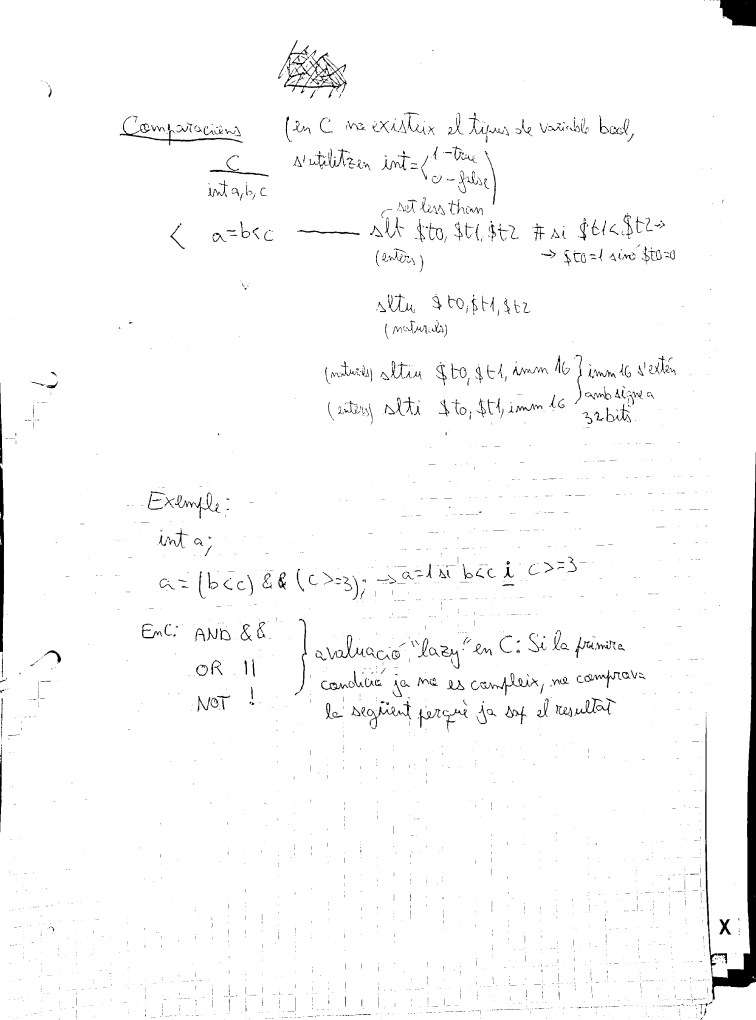 Comparacions (en C no existeix el tipus de variable bool,
C s'utilitzen int = < 1 - true
0 - false )
int a, b, c
set less than
< a = b < c —— slt $t0, $t1, $t2 # si $t1 < $t2 →
(enters) → $t0 = 1 sino $t0 = 0
sltu $t0, $t1, $t2
(naturals)
(naturals) sltiu $t0, $t1, imm 16 } imm 16 s'extén
(enters) slti $t0, $t1, imm 16 amb signe a
32 bits
Exemple:
int a;
a = (b < c) && (c >= 3); → a = 1 si b < c i c >= 3
En C: AND &&
OR ||
NOT !
} avaluació "lazy" en C: Si la primera
condició ja no es compleix, no comprova
la següent perquè ja sap el resultat
X